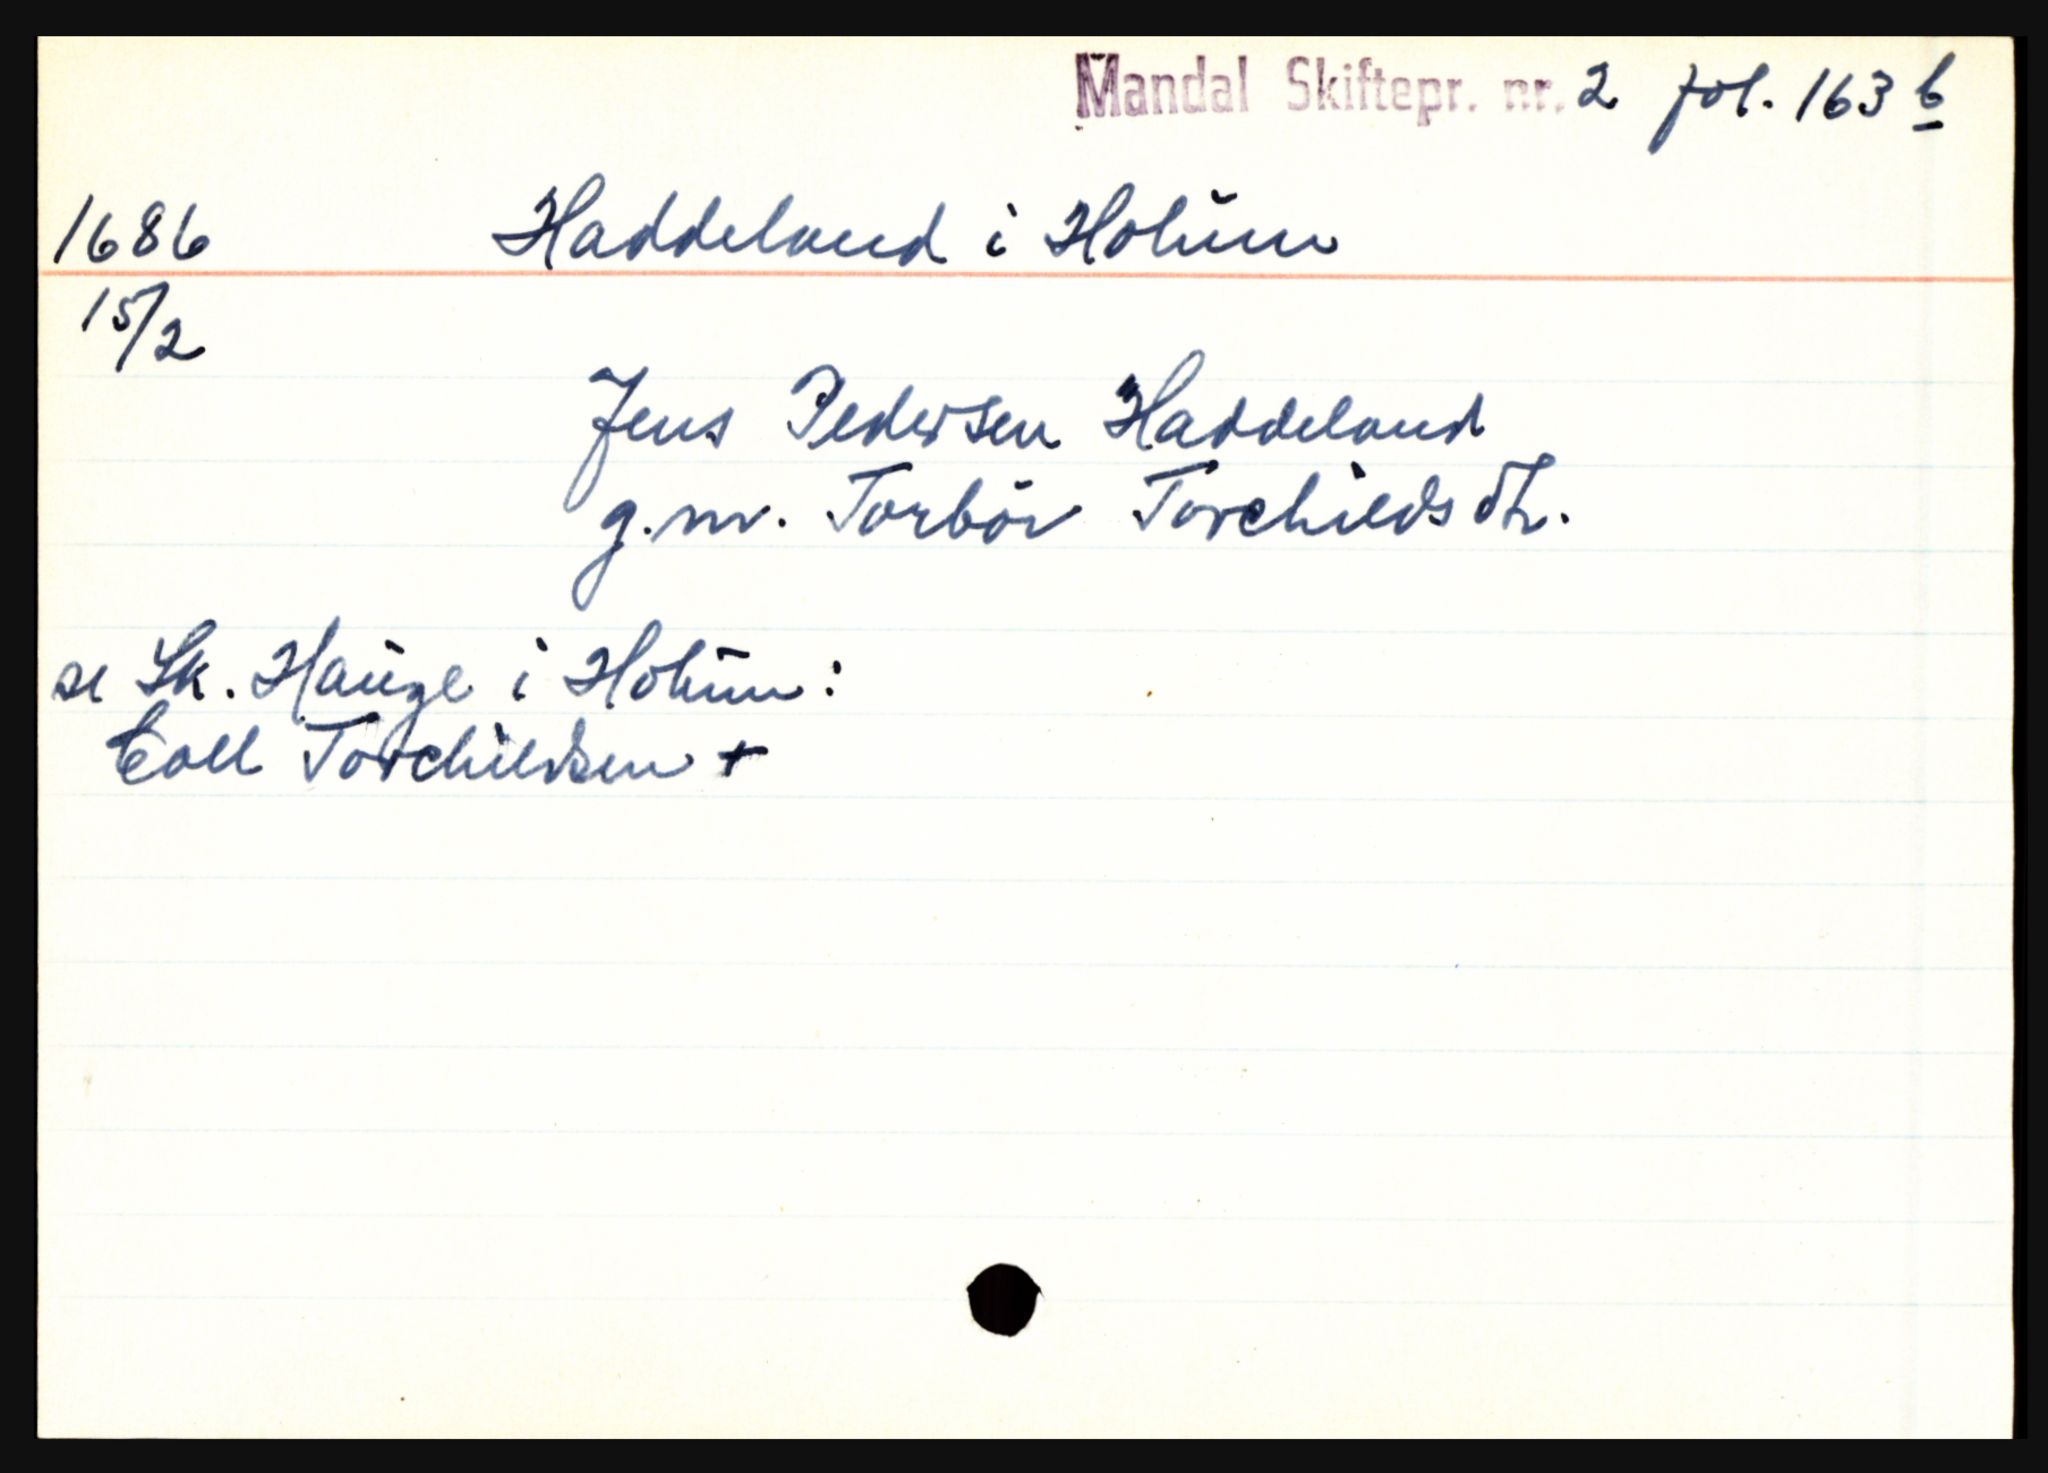 Mandal Skiftepr. nr. 2 fol. 163 b
1686 Haddeland i Holum
15/2
Jens Pedersen Haddeland
g.m. Torbör Torchildsdtr.
se Sk. Hauge i Holum:
Coll Torchildsen +